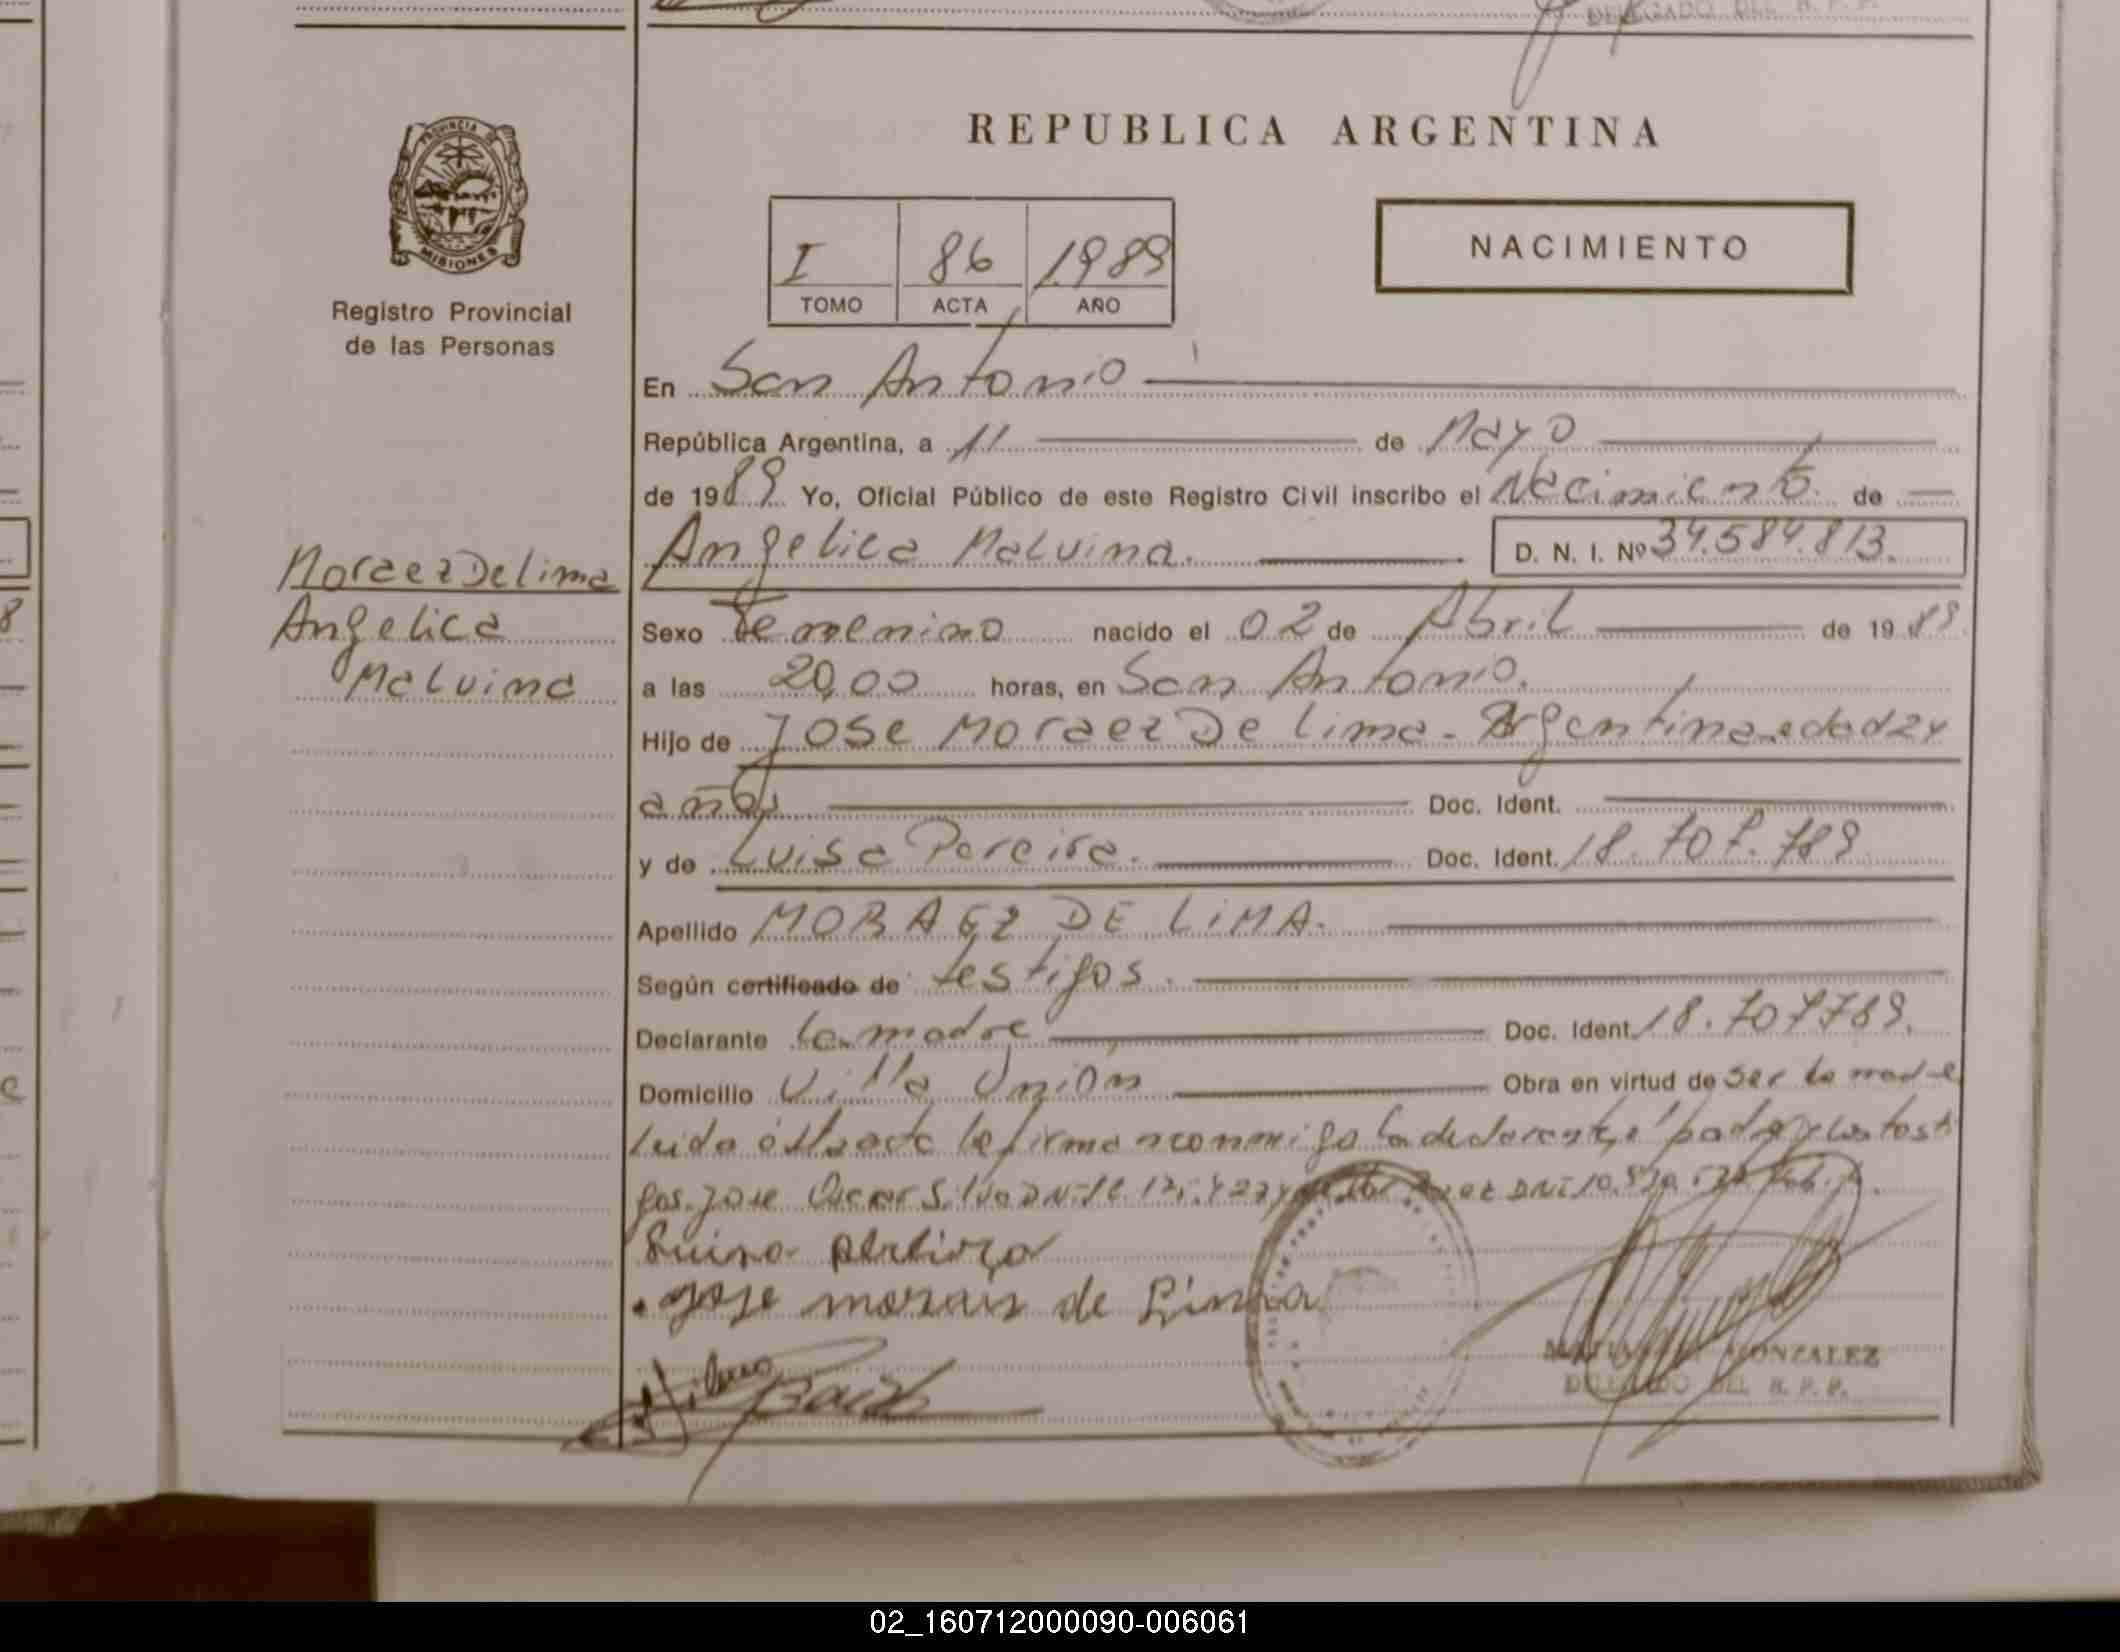 DELEGADO DEL R. P. P.
REPUBLICA ARGENTINA
PROVINCIA DE
MISIONES
Registro Provincial
de las Personas
I 86 1989
TOMO ACTA AÑO
NACIMIENTO
En San Antonio
República Argentina, a 11 de Mayo
de 1989 Yo, Oficial Público de este Registro Civil inscribo el Nacimiento de
Angelica Malvina. D. N. I. Nº 34.584.813.
Moraez De lima
Angelica
Malvina
Sexo Femenino nacido el 02 de Abril de 1989
a las 20,00 horas, en San Antonio.
Hijo de Jose Moraez De lima - Argentina - edad 24
años Doc. Ident.
y de Luisa Pereira. Doc. Ident. 18.707.789
Apellido MORAEZ DE LIMA.
Según certificado de testigos.
Declarante la madre Doc. Ident. 18.707789.
Domicilio Villa Unión Obra en virtud de ser la madre
Leida esta acta la firma conmigo la declarante, padre y los testi
gos. Jose Oscar Silva DNI 10.
Jose morais de Lima
Silva
GONZALEZ
DELEGADO DEL R. P. P.
02_160712000090-006061